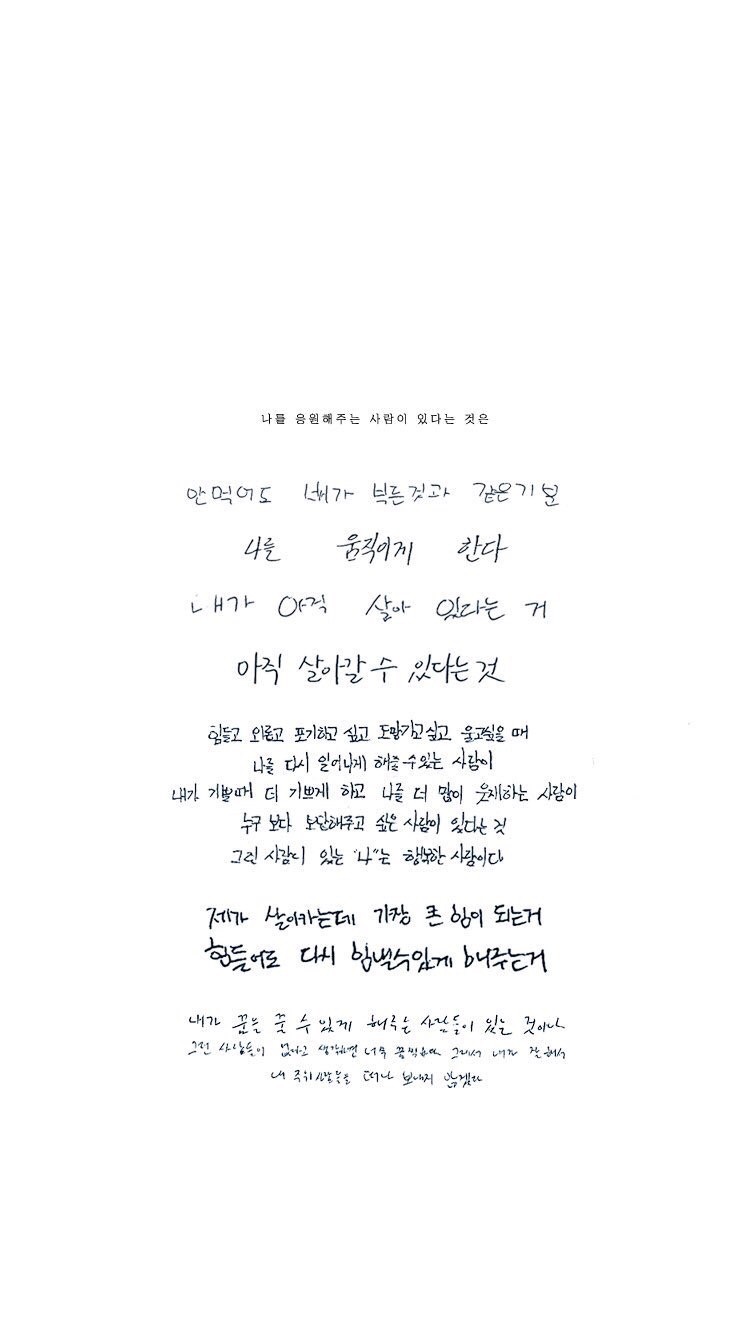 나를 응원해주는 사람이 있다는 것은
안먹어도 배가 부른것과 같은기분
나를 움직이게 한다
내가 아직 살아 있다는 거
아직 살아갈 수 있다는 것
힘들고 외롭고 포기하고 싶고 도망가고싶고 울고싶을 때
나를 다시 일어나게 해줄수있는 사람이
내가 기쁠때 더 기쁘게 하고 나를 더 많이 웃게하는 사람이
누구 보다 보답해주고 싶은 사람이 있다는 것
그런 사람이 있는 "나"는 행복한 사람이다
제가 살아가는데 가장 큰 힘이 되는거
힘들어도 다시 힘낼수있게 해주는거
내가 꿈을 꿀 수 있게 해주는 사람들이 있는 것이다
그런 사람들이 없다고 생각하면 너무 끔찍하다 그래서 내가 잘해서
내 주위 사람들을 떠나 보내지 않겠다